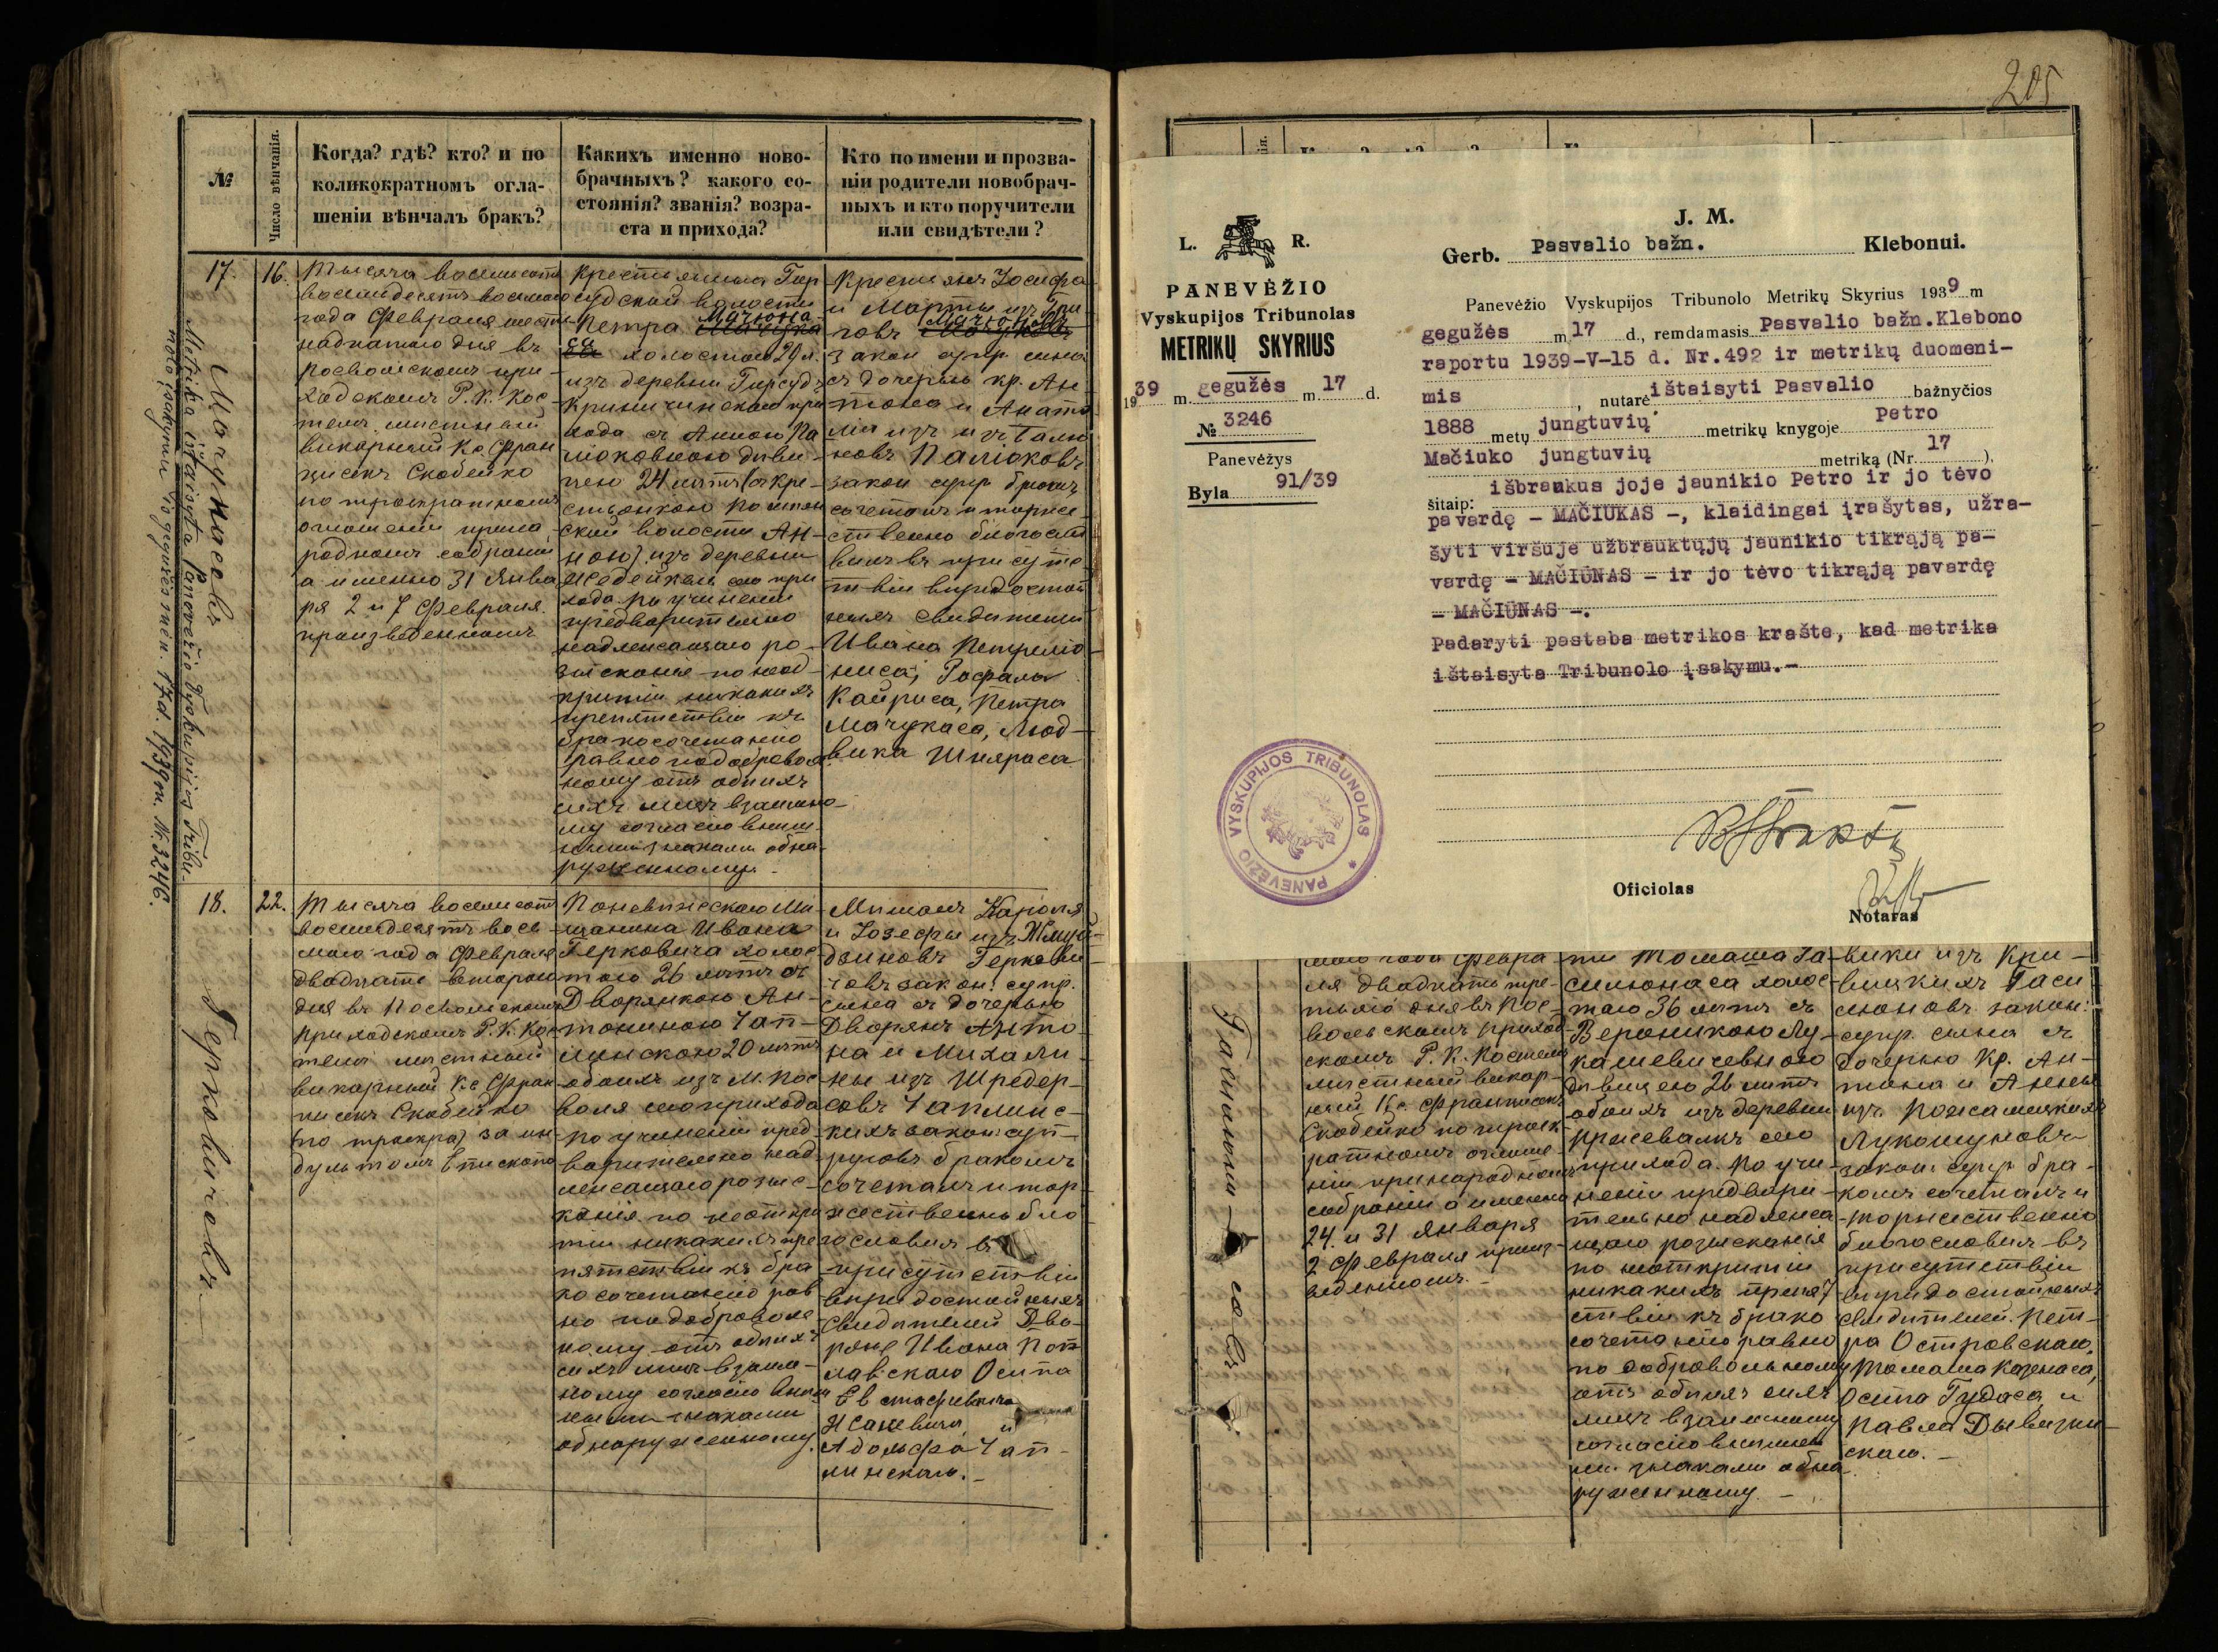 №
Число вѣнчанія.
Когда? гдѣ? кто? и по
коликократномъ огла-
шеніи вѣнчалъ бракъ?
Какихъ именно ново-
брачныхъ? какого со-
стоянія? званія? возра-
ста и прихода?
Кто по имени и прозва-
ніи родители новобрач-
ныхъ и кто поручители
или свидѣтели?
17.
16.
Мачукасовъ
Metrika ištaisyta Panevėžio Vyskupijos Tribu-
nolo įsakymu gegužės mėn. 17 d. 1939 m. Nr. 3246.
Тысяча восемьсотъ
восемьдесятъ восьмаго
года Февраля шест-
надцатаго дня въ
Посвольскомъ при-
ходскомъ Р. К. Кос-
телѣ мѣстный
викарный Кс. Фран
цискъ Скобейко
по троекратномъ
оглашеніи при на
родномъ собраніи
а именно 31 Янва
ря 2 и 7 Февраля
произведенномъ
крестьянина Гир
судской волости
Петра Мачюна-
са холостаго 29 л.
изъ деревни Гирсуд
Криничинскаго при
хода съ Анною Па
люковною дѣви-
цею 24 лѣтъ
ской волости Ан-
ною) изъ деревни
сего при
хода по учиненіи
предварительно
надлежащаго ро-
зысканія по неот
крытіи никакихъ
препятствій къ
бракосочетанію
равно по доброволь
ному отъ обоихъ
сихъ лицъ взаимно-
му согласію внѣш-
ними знаками обна-
руженному.-
Крестьянъ Іосифа
и Марты изъ
закон. супр. сына
съ дочерью кр. Ан
тона и
новъ Палюковъ
закон. супр. бракомъ
сочеталъ и торже-
ственно благосло
вилъ въ присутс-
твіи вѣридостой
ныхъ свидѣтелей
Ивана Петрелю-
ниса, Рафала
Кайриса, Петра
Мачукаса, Люд-
вика Шняраса
18.
22.
Герковичовъ
Тысяча восемьсотъ
восемьдесятъ вось-
маго года Февраля
двадцать втораго
дня въ Посвольскомъ
приходскомъ Р. К. Кос
телѣ мѣстный
викарный Кс. Фран
цискъ Скобейко
(по троекра) за ин-
дультомъ Епископа
Поневѣжскаго Мѣ
щанина Ивана
Герковича холос-
таго 26 лѣтъ съ
Дворянкою Ан-
тониною Чап-
линскою 20 лѣтъ
обоихъ изъ М. Пос
воля сего прихода
по учиненіи пред
варительно над-
лежащаго розыс-
канія по неоткры
тіи никакихъ пре
пятствій къ бра
косочетанію рав
но по доброволь
ному отъ обоихъ
сихъ лицъ взаим-
ному согласію внѣш
ними знаками
обнаруженному.
Мѣщанъ Кароля
и Іозефы изъ
Геркови-
човъ закон. супр.
сына съ дочерью
Дворянъ Анто-
на и Михали-
ны изъ Шредер-
совъ Чаплинс-
кихъ закон. суп-
руговъ бракомъ
сочеталъ и тор-
жественно бла
гословилъ въ
присутствіи
вѣридостойныхъ
свидѣтелей Дво-
рянъ Ивана Поп
лавскаго Осипа
Евстафіевича
Исаевича и
Адольфа Чап-
линскаго.-
205
L. R.
PANEVĖŽIO
Vyskupijos Tribunolas
METRIKŲ SKYRIUS
1939 m. gegužės m. 17 d.
№ 3246
Panevėžys
Byla 91/39
J. M.
Gerb. Pasvalio bažn. Klebonui.
Panevėžio Vyskupijos Tribunolo Metrikų Skyrius 1939 m
gegužės m. 17 d., remdamasis Pasvalio bažn.Klebono
raportu 1939-V-15 d. Nr.492 ir metrikų duomeni-
mis, nutarė ištaisyti Pasvalio bažnyčios
1888 metų jungtuvių metrikų knygoje Petro
Mačiuko jungtuvių metriką (Nr. 17 ),
šitaip: išbraukus joje jaunikio Petro ir jo tėvo
pavardę - MAČIUKAS -, klaidingai įrašytas, užra-
šyti viršuje užbrauktųjų jaunikio tikrąją pa-
vardę - MAČIŪNAS - ir jo tėvo tikrąją pavardę
- MAČIŪNAS -.
Padaryti pastaba metrikos krašte, kad metrika
ištaisyta Tribunolo įsakymu.-
PANEVĖŽIO VYSKUPIJOS TRIBUNOLAS
Oficiolas
Notaras
маго года Февра
ля двадцать тре-
тьяго дня въ Пос-
вольскомъ приход
скомъ Р. К. Костелѣ
мѣстный викар-
ный Кс. Францискъ
Скобейко по троек
ратномъ оглаше-
ніи при народномъ
собраніи а именно
24 и 31 Января
2 Февраля произ-
веденномъ.-
Томаша Га
силюнаса холос-
таго 36 лѣтъ съ
Вероникою Лу-
дѣвицею 26 лѣтъ
обоихъ изъ деревни
сего
прихода. По учи-
неніи предвари-
тельно надлежа-
щаго розысканія
по неоткрытіи
никакихъ препят
ствій къ брако
сочетанію равно
по добровольному
отъ обоихъ сихъ
лицъ взаимному
согласію внѣшни
ми знаками обна
руженному.-
вики изъ Кри-
вицкихъ Гаси
люновъ закон.
супр. сына съ
дочерью Кр. Ан-
тона и Анны
изъ
закон. супр. бра-
комъ сочеталъ и
торжественно
благословилъ въ
присутствіи
вѣридостойныхъ
свидѣтелей. Пет-
ра Островскаго,
Томаша
Осипа Гудаса и
Павла
скаго.-